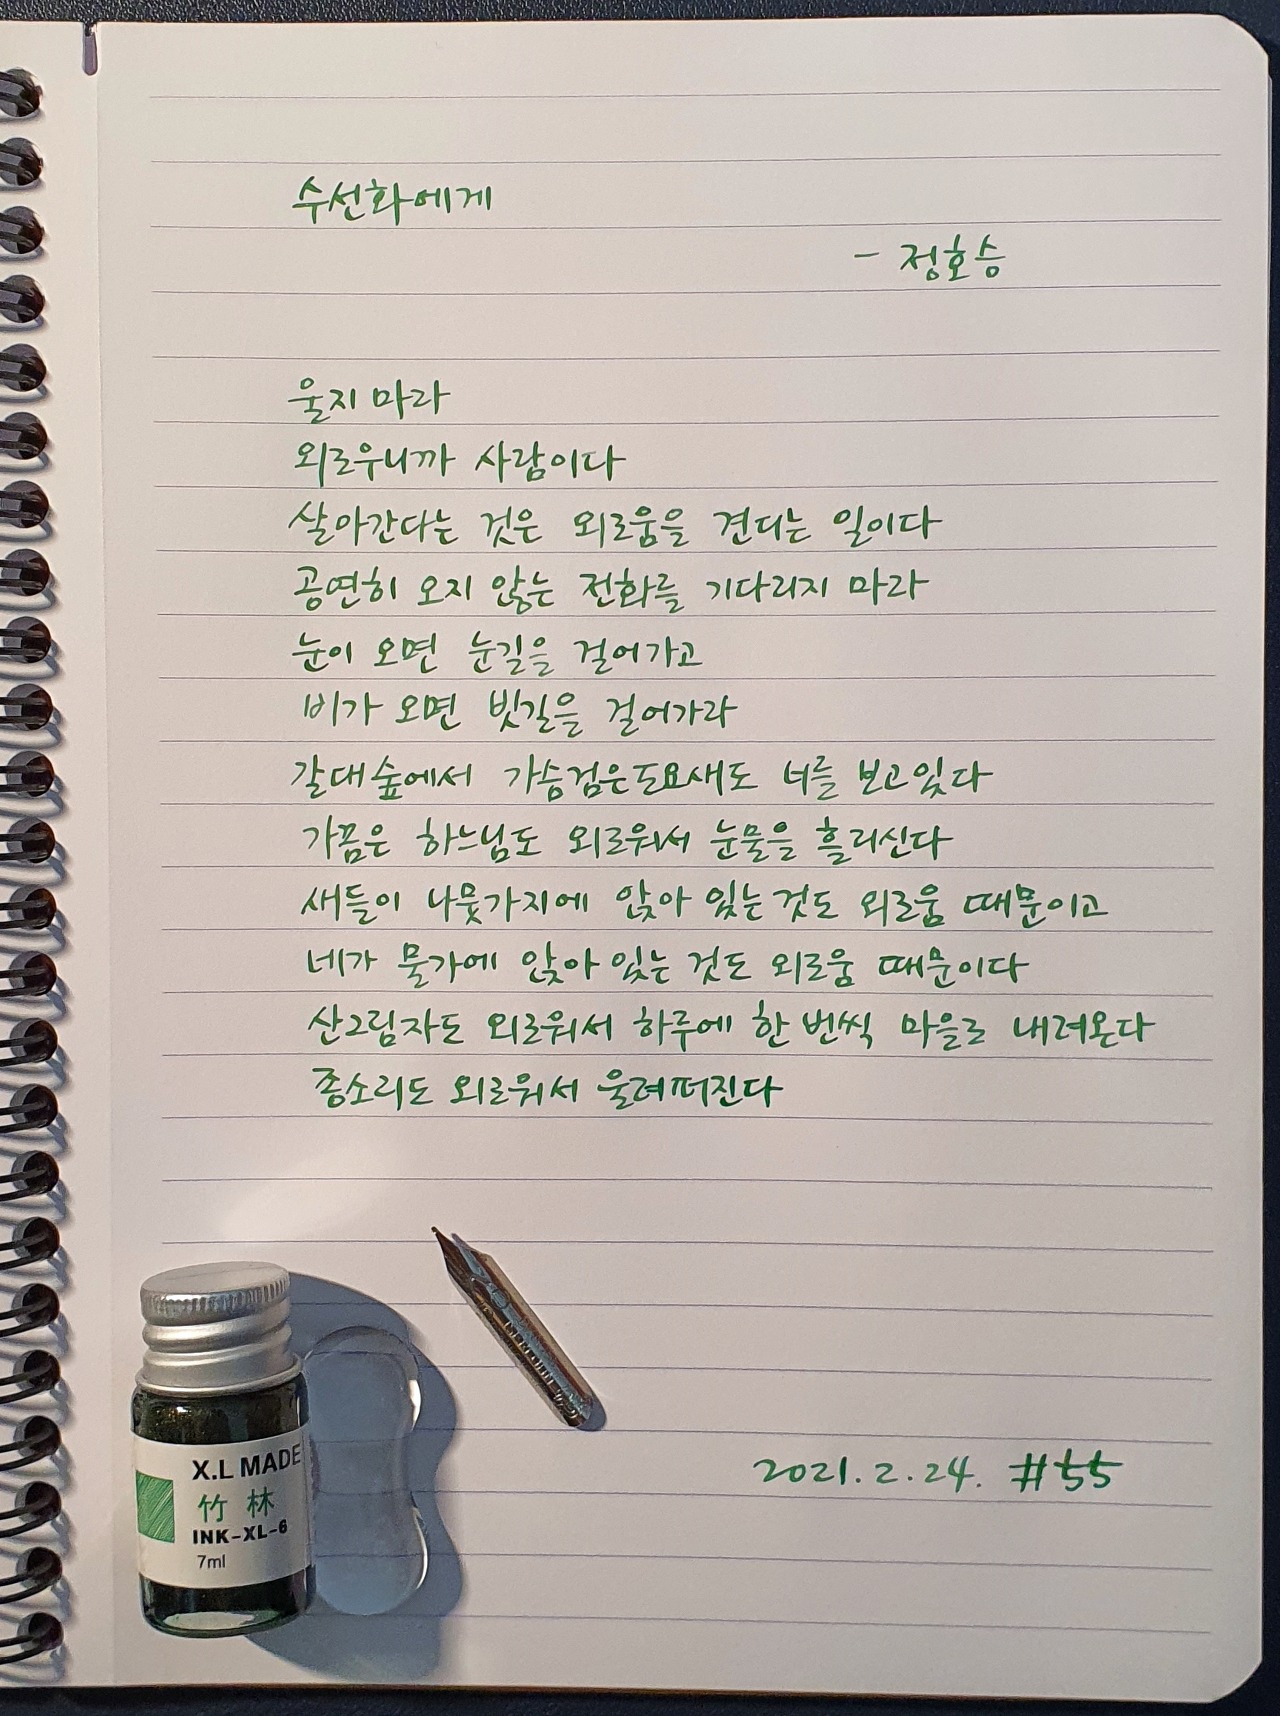 수선화에게
- 정호승
울지 마라
외로우니까 사람이다
살아간다는 것은 외로움을 견디는 일이다
공연히 오지 않는 전화를 기다리지 마라
눈이 오면 눈길을 걸어가고
비가 오면 빗길을 걸어가라
갈대숲에서 가슴검은도요새도 너를 보고있다
가끔은 하느님도 외로워서 눈물을 흘리신다
새들이 나뭇가지에 앉아 있는 것도 외로움 때문이고
네가 물가에 앉아 있는 것도 외로움 때문이다
산그림자도 외로워서 하루에 한 번씩 마을로 내려온다
종소리도 외로워서 울려퍼진다
X.L MADE
竹 林
INK-XL-6
7ml
2021.2.24. #55